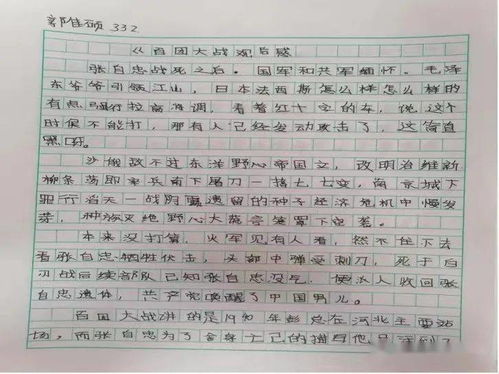 郭佳硕 332
《百团大战观后感
张自忠战死之后。国军和共军缅怀。毛泽
东爷爷引领江山,日本法西斯怎么样怎么样的
有点强行拉高格调,看着红十字的车,说,这个
时候不能打,那有人已经发动攻击了,这简直
黑呀。
沙俄敌不过东洋野心帝国主义,改明治维新
柳条荡即率兵南下屠刀一 七七变,南京城下
罪行当天一战阴霾遗留的种子经济危机中慢发
芽,种族灭绝野心大 笼罩下
本来没打算,火军见有人看,忽不住下去
看张自忠牺牲伏击,头部中弹受刺刀,死于白
刃战后续部队已知张自忠没气,便派人收回张
自忠遗体,共产党唤醒了中国男儿。
百团大战讲的是1940年彭总在河北主
场,而张自忠为了 自己的 他